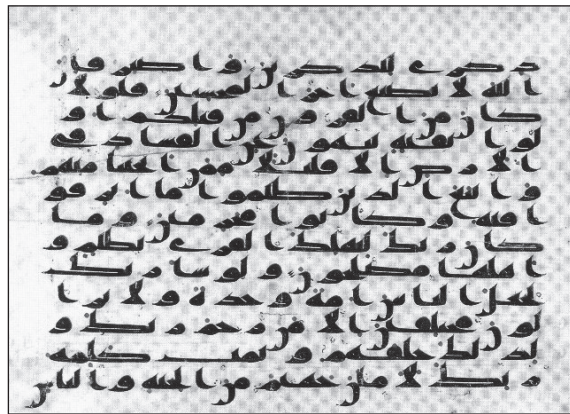 ذكرى للذكرين واصبر فان
الله لا يضيع اجر المحسنين فلولا
كان من القرون من قبلكم او
لوا بقية ينهون عن الفساد في
الارض الا قليلا ممن انجينا منهم
واتبع الذين ظلموا ما اترفو
ا فيه وكانوا مجرمين وما
كان ربك ليهلك القرى بظلم و
اهلها مصلحون ولو شا ربك
لجعل الناس امة وحدة ولا يزا
لون مختلفين الا من رحم ربك و
لذلك خلقهم وتمت كلمة
ربك لاملن جهنم من الجنة والناس